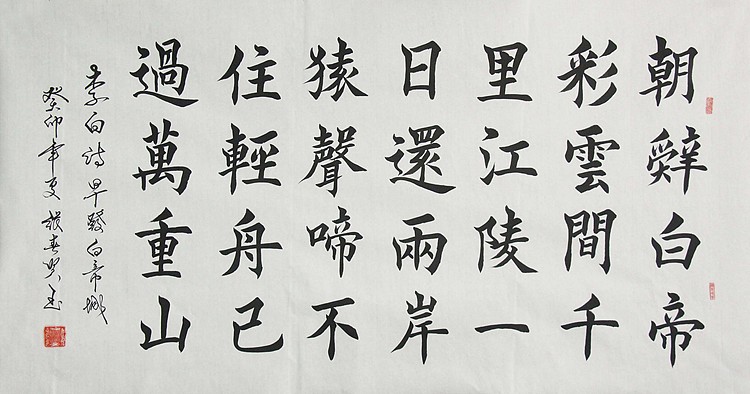 朝辭白帝
彩雲間千
里江陵一
日還兩岸
猿聲啼不
住輕舟已
過萬重山
李白詩早發白帝城
癸卯年夏張春賢書